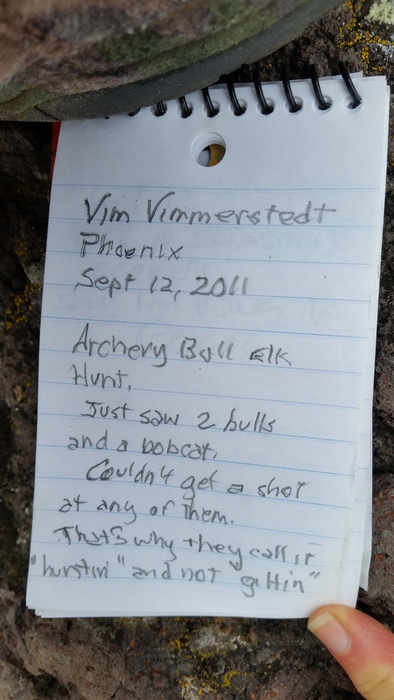 Vim Vimmerstedt
Phoenix
Sept 12, 2011
Archery Bull Elk
Hunt,
Just saw 2 bulls
and a bobcat.
Couldn't get a shot
at any of them.
That's why they call it
"huntin" and not gittin"